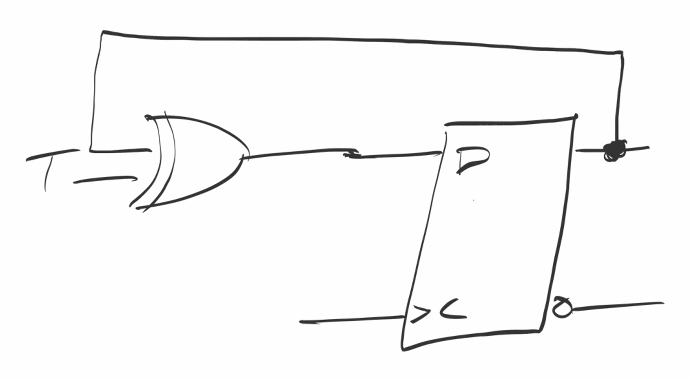 T
D
>C